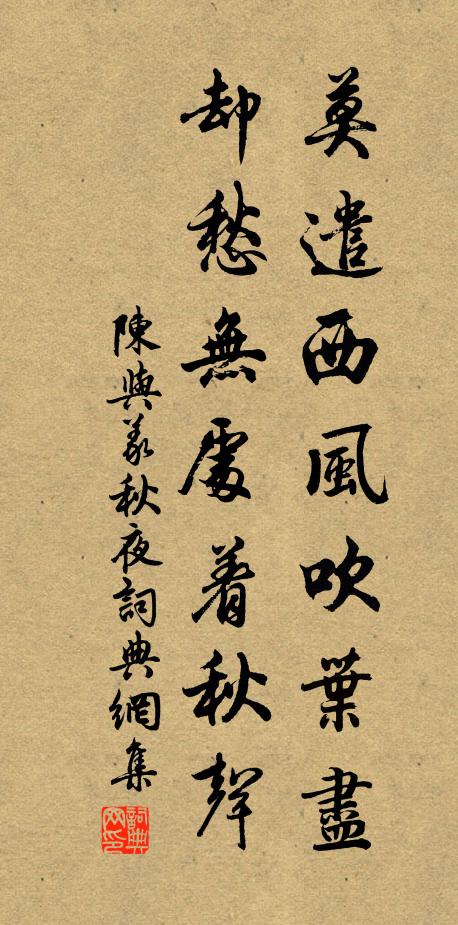 莫遣西風吹葉盡
却愁無處着秋聲
陳與義秋夜詞典網集
詞典網印